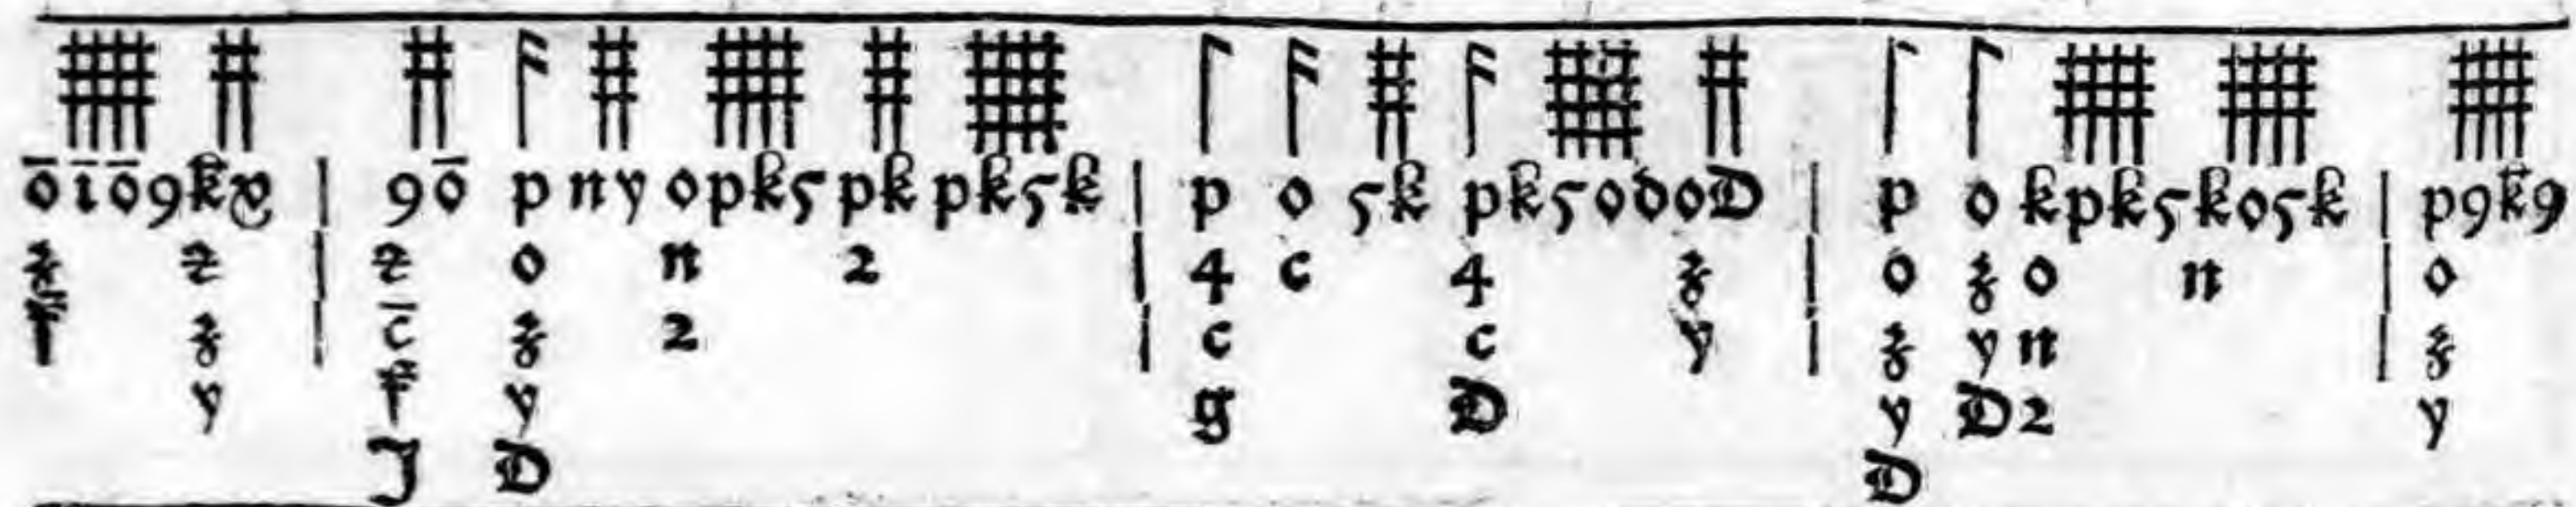 ō ī ō 9 k̄ Ꝺ | 9 ō p n y o p k 5 p k p k 5 k | p o 5 k p k 5 o d o D | p o k p k 5 k o 5 k | p 9 k̄ 9
z z | z o n 2 | 4 c 4 z | o z o n | o
f̄ z | c̄ z 2 | c c y | z y n | z
y f̄ y g D y D 2 y
J D D